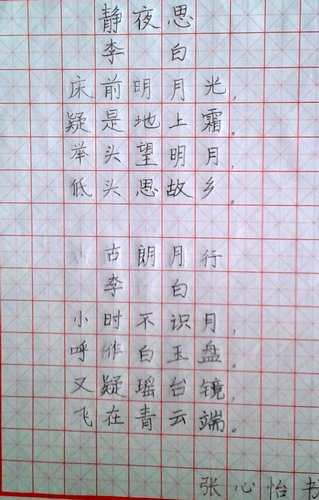 静夜思
李白
床前明月光，
疑是地上霜。
举头望明月，
低头思故乡。
古朗月行
李白
小时不识月，
呼作白玉盘。
又疑瑶台镜，
飞在青云端。
张心怡书